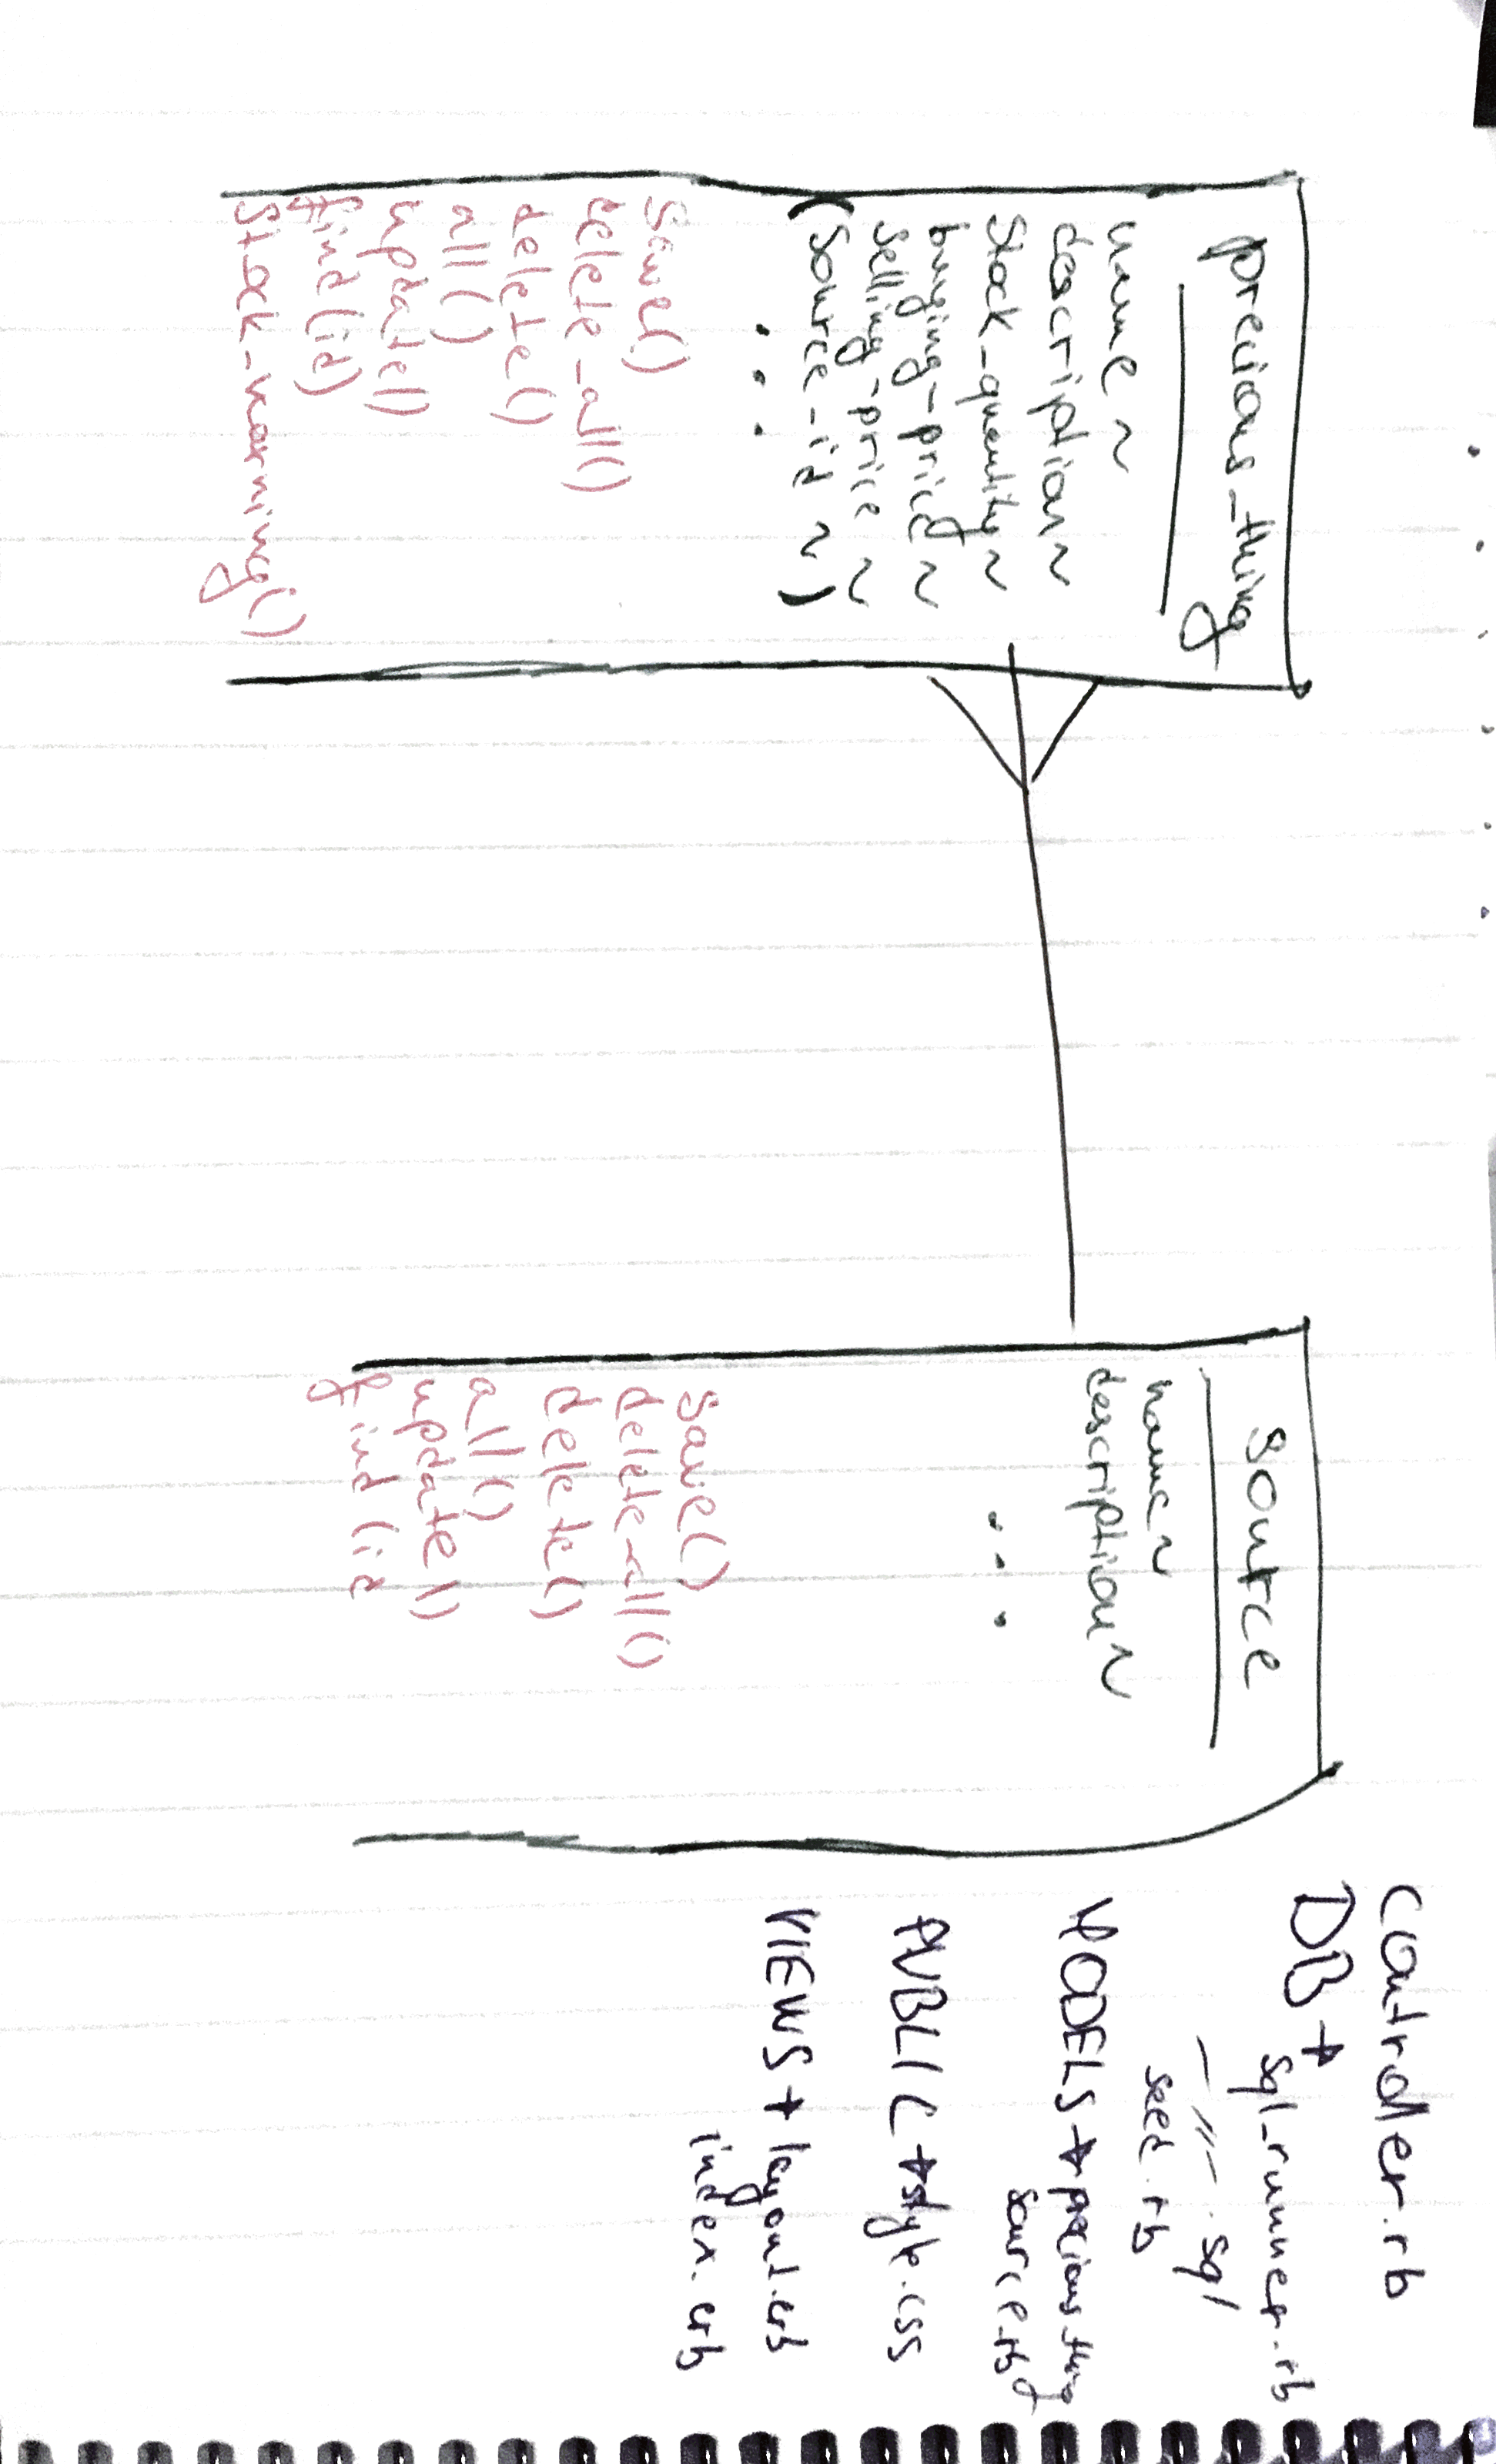 precious_thing
name ~
description ~
stock_quantity ~
buying_price ~
selling_price ~
(source_id ~)
...
save()
delete_all()
delete()
all()
update()
find(id)
stock_warning()
source
name ~
description ~
...
save()
delete_all()
delete()
all()
update()
find(id
controller.rb
DB →
sql_runner.rb
— 〃 — .sql
seed.rb
MODELS → precious thing
source.rb
PUBLIC → style.css
VIEWS → layout.erb
index.erb